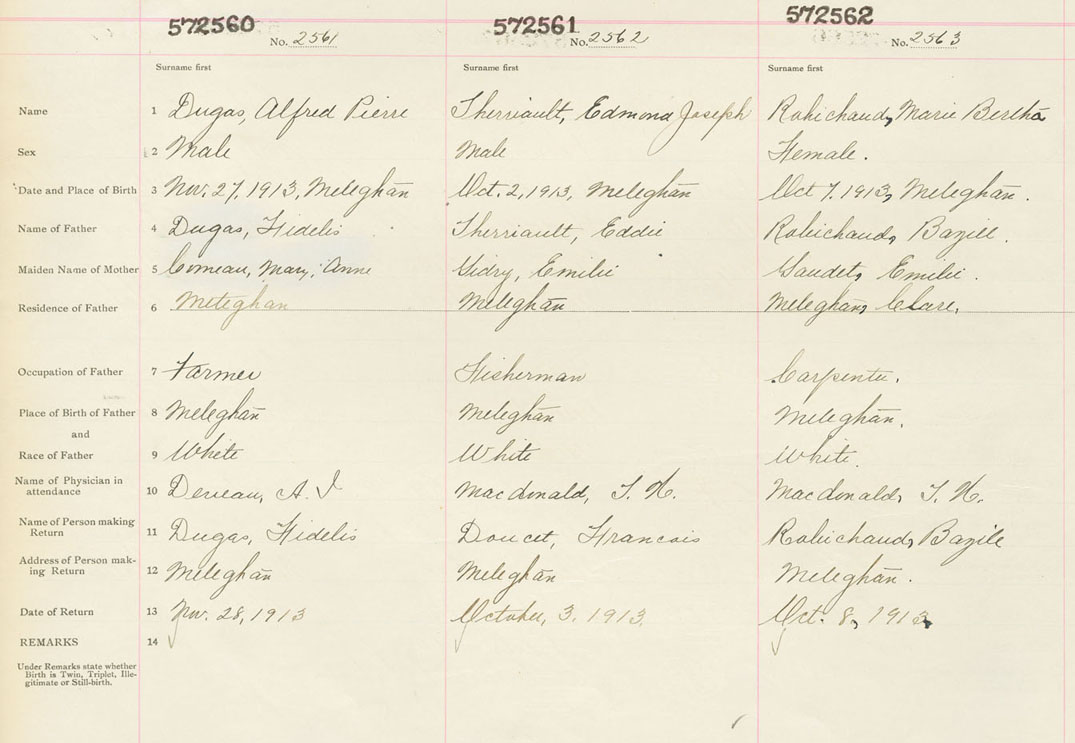 572560 572561 572562
No. 2561 No. 2562 No. 2563
Surname first Surname first Surname first
Name 1 Dugas, Alfred Pierre Therriault, Edmond Joseph Robichaud, Marie Bertha
Sex 2 Male Male Female.
Date and Place of Birth 3 Nov. 27, 1913, Meteghan Oct. 2, 1913, Meteghan Oct 7, 1913, Meteghan.
Name of Father 4 Dugas, Fidelis Therriault, Eddie Robichaud, Bazile.
Maiden Name of Mother 5 Comeau, Mary Anne Gidry, Emilie Gaudet, Emilie.
Residence of Father 6 Meteghan Meteghan Meteghan, Clare.
Occupation of Father 7 Farmer Fisherman Carpenter.
Place of Birth of Father 8 Meteghan Meteghan Meteghan.
and
Race of Father 9 White White White.
Name of Physician in
attendance 10 Deveau, A. Macdonald, T. H. Macdonald, T. H.
Name of Person making
Return 11 Dugas, Fidelis Doucet, Francois Robichaud, Bazile
Address of Person mak-
ing Return 12 Meteghan Meteghan Meteghan.
Date of Return 13 Nov. 28, 1913 October, 3. 1913. Oct. 8, 1913,
REMARKS 14
Under Remarks state whether
Birth is Twin, Triplet, Ille-
gitimate or Still-birth.